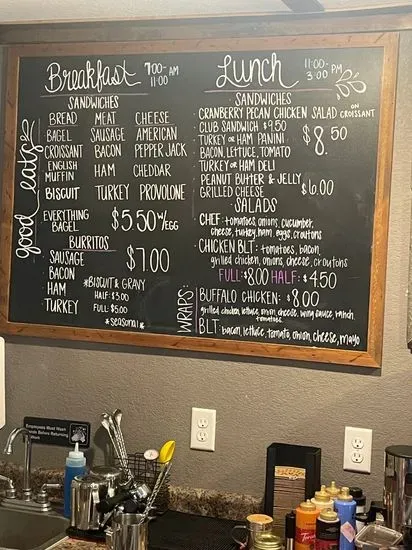 good eats
Breakfast 7:00-AM
11:00
SANDWICHES
BREAD MEAT CHEESE
BAGEL SAUSAGE AMERICAN
CROISSANT BACON PEPPER JACK
ENGLISH MUFFIN HAM CHEDDAR
BISCUIT TURKEY PROVOLONE
EVERYTHING BAGEL $5.50 W/EGG
BURRITOS
SAUSAGE
BACON
HAM
TURKEY
$7.00
*BISCUIT & GRAVY
HALF: $3.00
FULL: $5.00
*SEASONAL*
Lunch 11:00-
3:00 PM
SANDWICHES
CRANBERRY PECAN CHICKEN SALAD ON CROISSANT
CLUB SANDWICH $9.50
TURKEY OR HAM PANINI
BACON, LETTUCE, TOMATO
TURKEY OR HAM DELI
$8.50
PEANUT BUTTER & JELLY
GRILLED CHEESE
$6.00
SALADS
CHEF: tomatoes, onions, cucumber,
cheese, turkey, ham, eggs, croutons
CHICKEN BLT: tomatoes, bacon,
grilled chicken, onions, cheese, croutons
FULL: $8.00 HALF: $4.50
WRAPS:
BUFFALO CHICKEN: $8.00
grilled chicken, lettuce, onion, cheese, wing sauce, ranch,
tomatoes
BLT: bacon, lettuce, tomato, onion, cheese, mayo
Employees Must Wash
Hands Before
Returning To Work